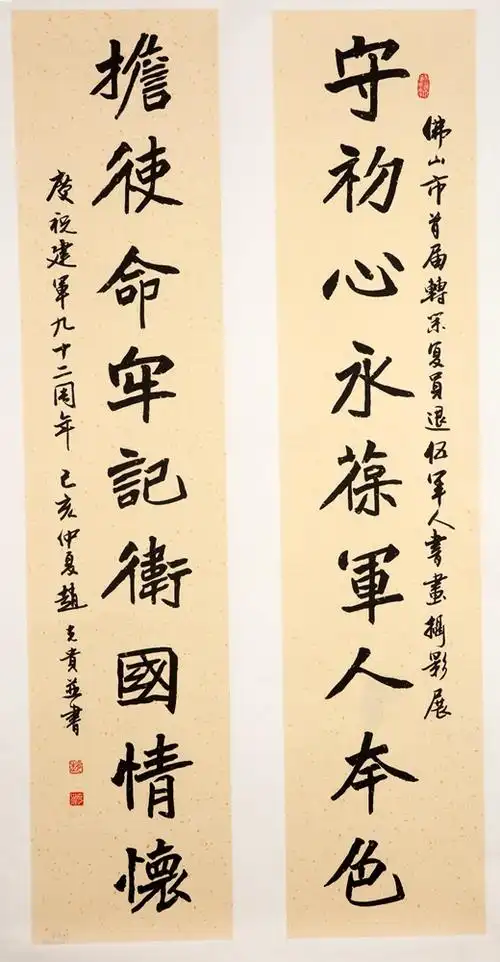 守初心永葆軍人本色
佛山市首届轉業復員退伍軍人書畫攝影展
擔使命牢記衛國情懷
慶祝建軍九十二周年 己亥仲夏趙克貴並書